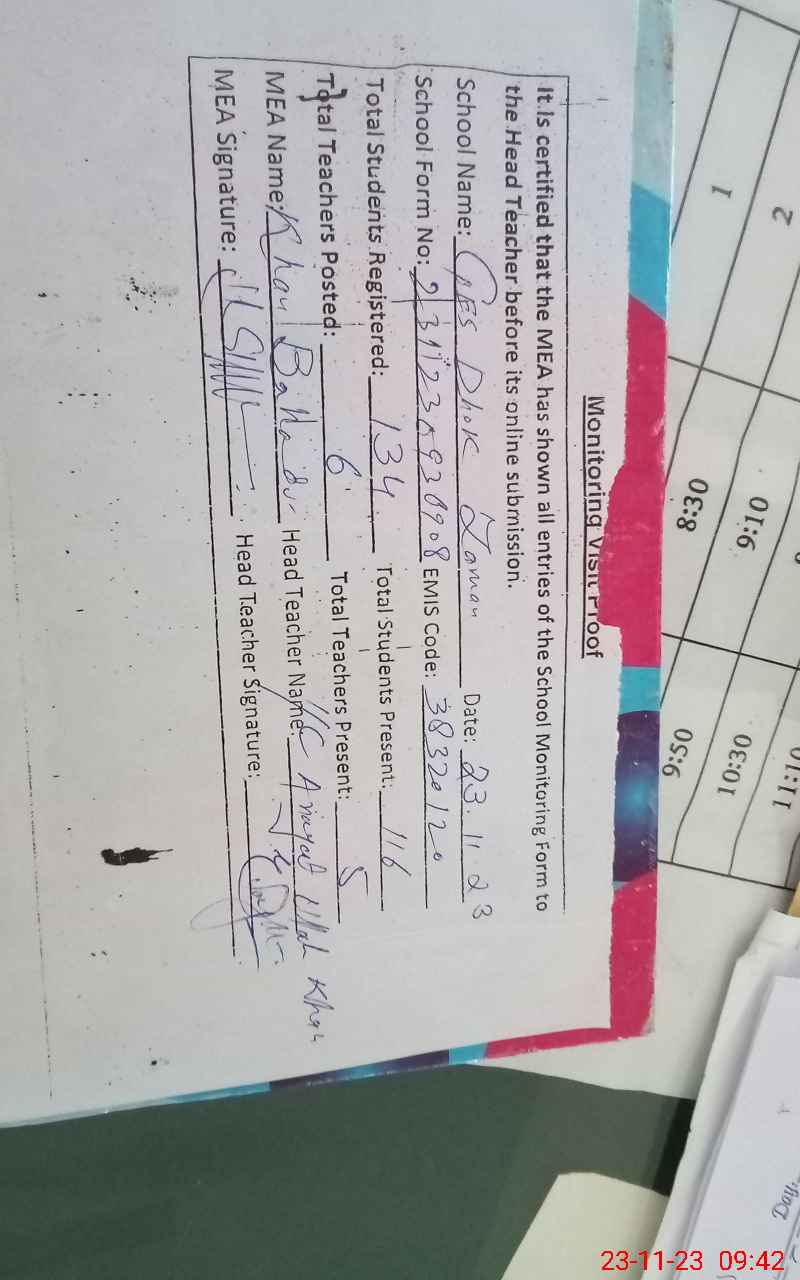 Monitoring Visit Proof
It Is certified that the MEA has shown all entries of the School Monitoring Form to
the Head Teacher before its online submission.
School Name: GPS Dhok Zaman Date: 23.11.23
School Form No: EMIS Code: 38320120
Total Students Registered: 134 Total Students Present: 116
Total Teachers Posted: 6 Total Teachers Present: 5
MEA Name: Khan Bahadur Head Teacher Name: Amayat Ullah Khan
MEA Signature: Head Teacher Signature:
2 9:10 10:30 11:10
1 8:30 9:50
23-11-23 09:42